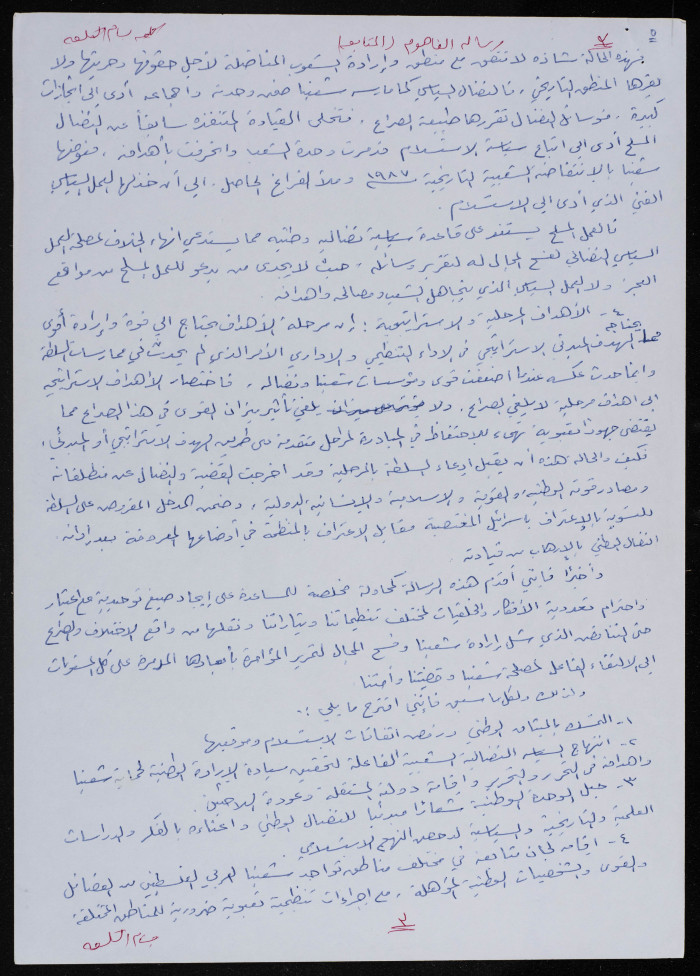 ٥
كلمة بسام الشكعة
رسالة الفاهوم (المتابعة)
فهذه الحالة شاذه لا تتفق مع منطق وإرادة الشعوب المناضلة لأجل حقوقها وحريتها ولا
يقرها المنطق التاريخي، فالنضال السياسي كما مارسه شعبنا ضمن وحدته واجماعه أدى الى انجازات
كبيرة، فوسائل النضال تقررها طبيعة الصراع، فتخلي القيادة المتنفذه سابقاً عن النضال
المسلح أدى الى اتباع سياسة الاستسلام فدمرت وحدة الشعب وانحرفت بأهدافه، فعوضها
شعبنا بالانتفاضة الشعبية التاريخية ١٩٨٧ وملأ الفراغ الحاصل. الى أن خذلها العمل السياسي
الفني الذي أدى الى الاستسلام.
فالعمل المسلح يستند على قاعدة سياسية نضاليه وطنيه مما يستدعي انهاء الخلاف لمصلحة العمل
السياسي النضالي لفتح المجال له لتقرير وسائله، حيث لا يجدى من يدعو للعمل المسلح من مواقع
العجز ولا العمل السياسي الذي يتجاهل الشعب ومصالحه واهدافه.
٤- الأهداف المرحلية والاستراتيجية: إن مرحلة الأهداف يحتاج الى قوة وإرادة أقوى
يحتاجه الهدف المبدئي الاستراتيجي في الاداء التنظيمي والاداري الأمر الذي لم يحدث في ممارسات السلطة
وانما حدث عكسه عندما اضعفت قوى ومؤسسات شعبنا ونضاله، فاختصار الأهداف الاستراتيجيه
الى اهداف مرحلية لا يلغي الصراع. ولا يلغي تأثير ميزان القوى في هذا الصراع مما
يقتضي جهوداً تعبوية تهيء للاحتفاظ في المبادرة لمراحل متقدمة على طريق الهدف الاستراتيجي أو المبدئي.
فكيف والحاله هذه أن يقبل ادعاء السلطة بالمرحلية وقد اخرجت القضية والنضال عن منطلقاته
ومصادر قوته الوطنية والقومية والاسلامية والانسانية الدولية، وضمن المدخل المفروض على السلطة
للتسوية بالإعتراف باسرائيل المغتصبة مقابل الاعتراف بالمنظمة في أوضاعها المعروفة بعد إدانة
النضال الوطني بالإرهاب من قيادته.
وأخيراً فإنني أقدم هذه الرسالة كمحاولة مخلصة للمساعدة على إيجاد صيغ توحيدية مع اعتبار
واحترام تعددية الأفكار والخلفيات لمختلف تنظيماتنا وتياراتنا ونقلها من واقع الاختلاف والصراع
حتى التناقض الذي شل إرادة شعبنا وفسح المجال لتمرير المؤامرة بأبعادها المدمرة على كل المستويات
الى الالتقاء الفاعل لمصلحة شعبنا وقضيتنا وأمتنا.
ولذلك ولكل ما سبق فإنني اقترح ما يلي:
١- التمسك بالميثاق الوطني ورفض اتفاقات الاستسلام وموقعيها
٢- انتهاج السبيل النضالية الشعبية الفاعلة لتحقيق سيادة الإرادة الوطنية لحماية شعبنا
واهدافه في التحرر والتحرير وإقامة دولته المستقلة وعودة اللاجئين.
٣- جعل الوحدة الوطنية شعاراً مبدئياً للنضال الوطني واغناءه بالفكر والدراسات
العلمية والتاريخية والسياسية لدحض النهج الاستسلامي
٤- اقامة لجان متابعة في مختلف مناطق تواجد شعبنا العربي الفلسطيني من الفصائل
والقوى والشخصيات الوطنية المؤهلة، مع اجراءات تنظيمية تعبوية ضرورية للمناطق المختلفة
بسام الشكعة